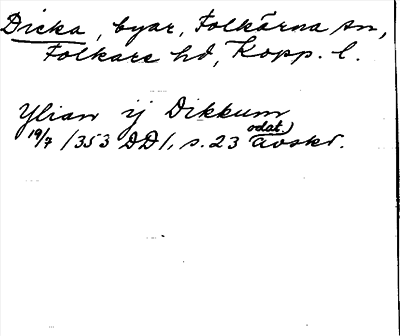 Dicka, byar, Folkärna sn,
Folkare hd, Kopp. l.
Ylian ij Dikkum
19/7 1353 DD1, s. 23 odat. avskr.